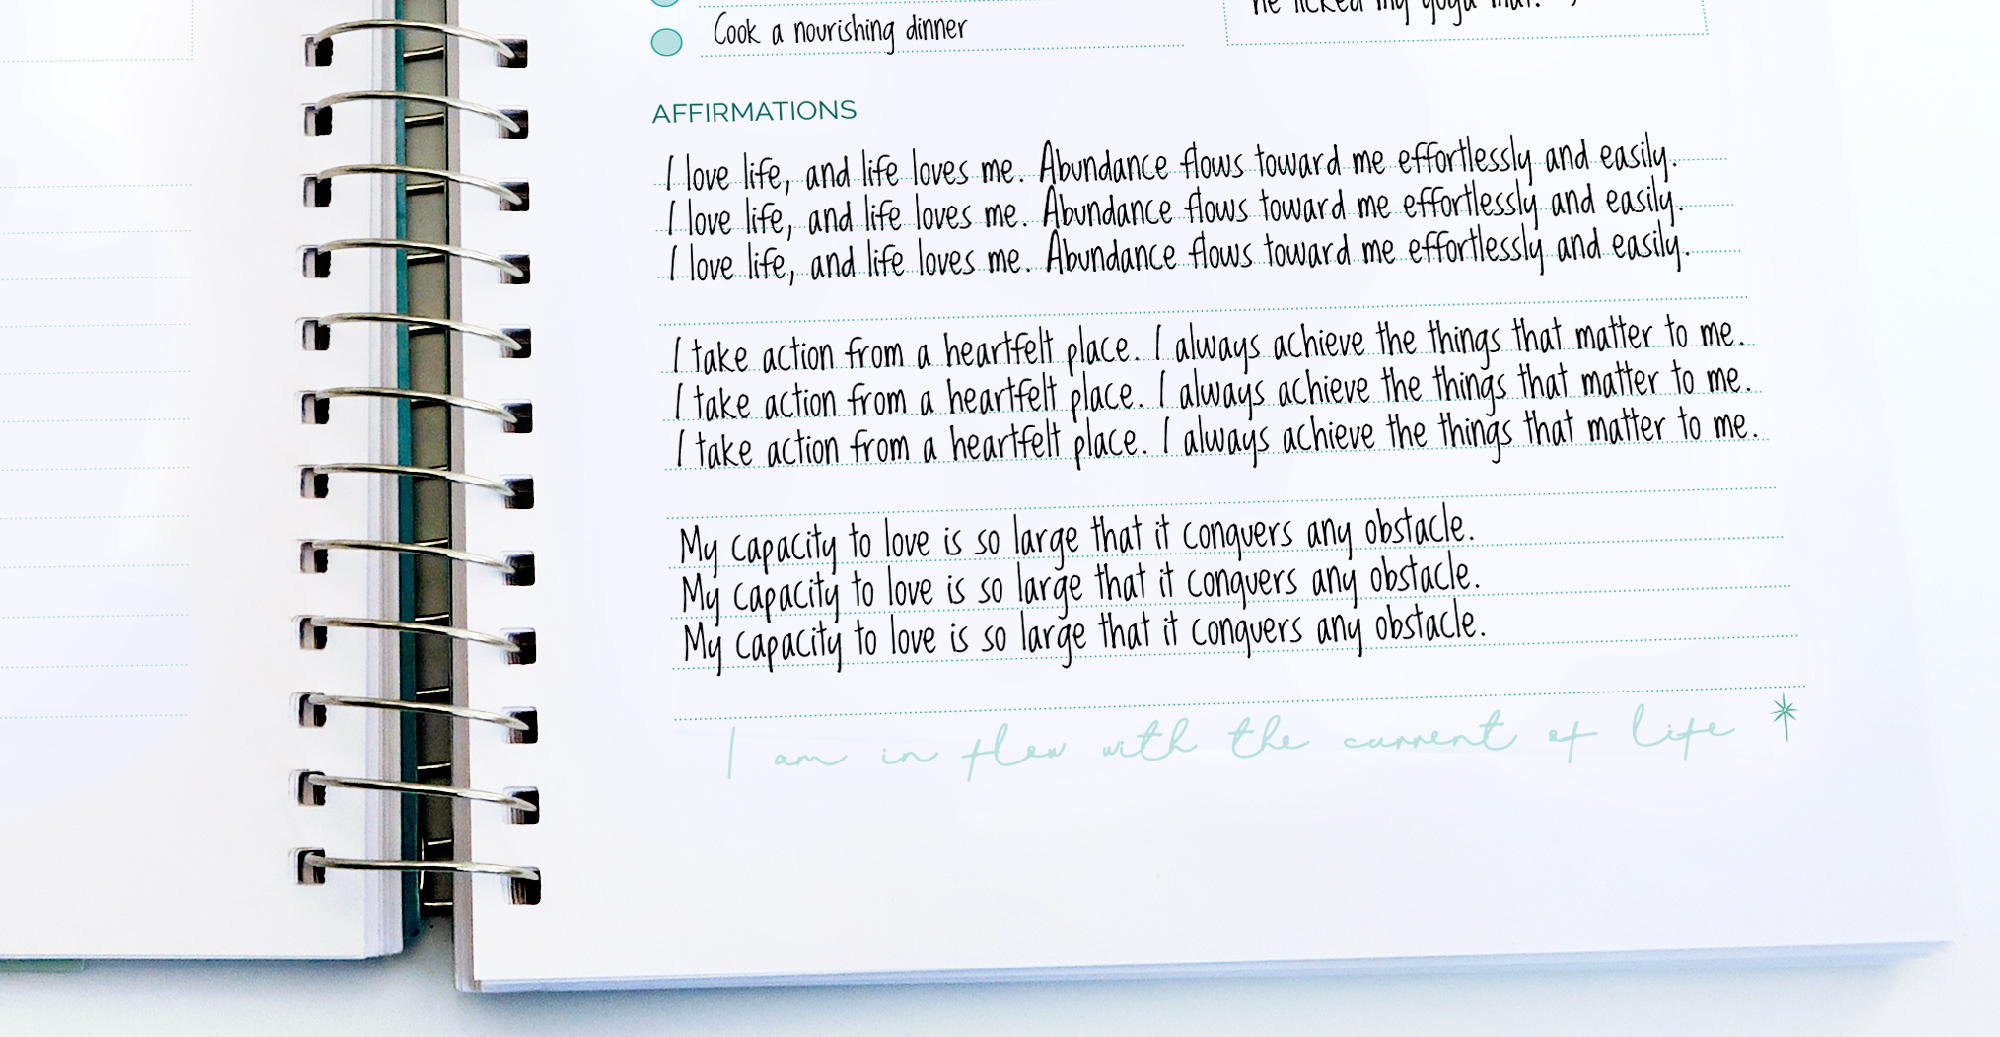 he licked my yoga mat.
Cook a nourishing dinner
AFFIRMATIONS
I love life, and life loves me. Abundance flows toward me effortlessly and easily.
I love life, and life loves me. Abundance flows toward me effortlessly and easily.
I love life, and life loves me. Abundance flows toward me effortlessly and easily.
I take action from a heartfelt place. I always achieve the things that matter to me.
I take action from a heartfelt place. I always achieve the things that matter to me.
I take action from a heartfelt place. I always achieve the things that matter to me.
My capacity to love is so large that it conquers any obstacle.
My capacity to love is so large that it conquers any obstacle.
My capacity to love is so large that it conquers any obstacle.
I am in flow with the current of life